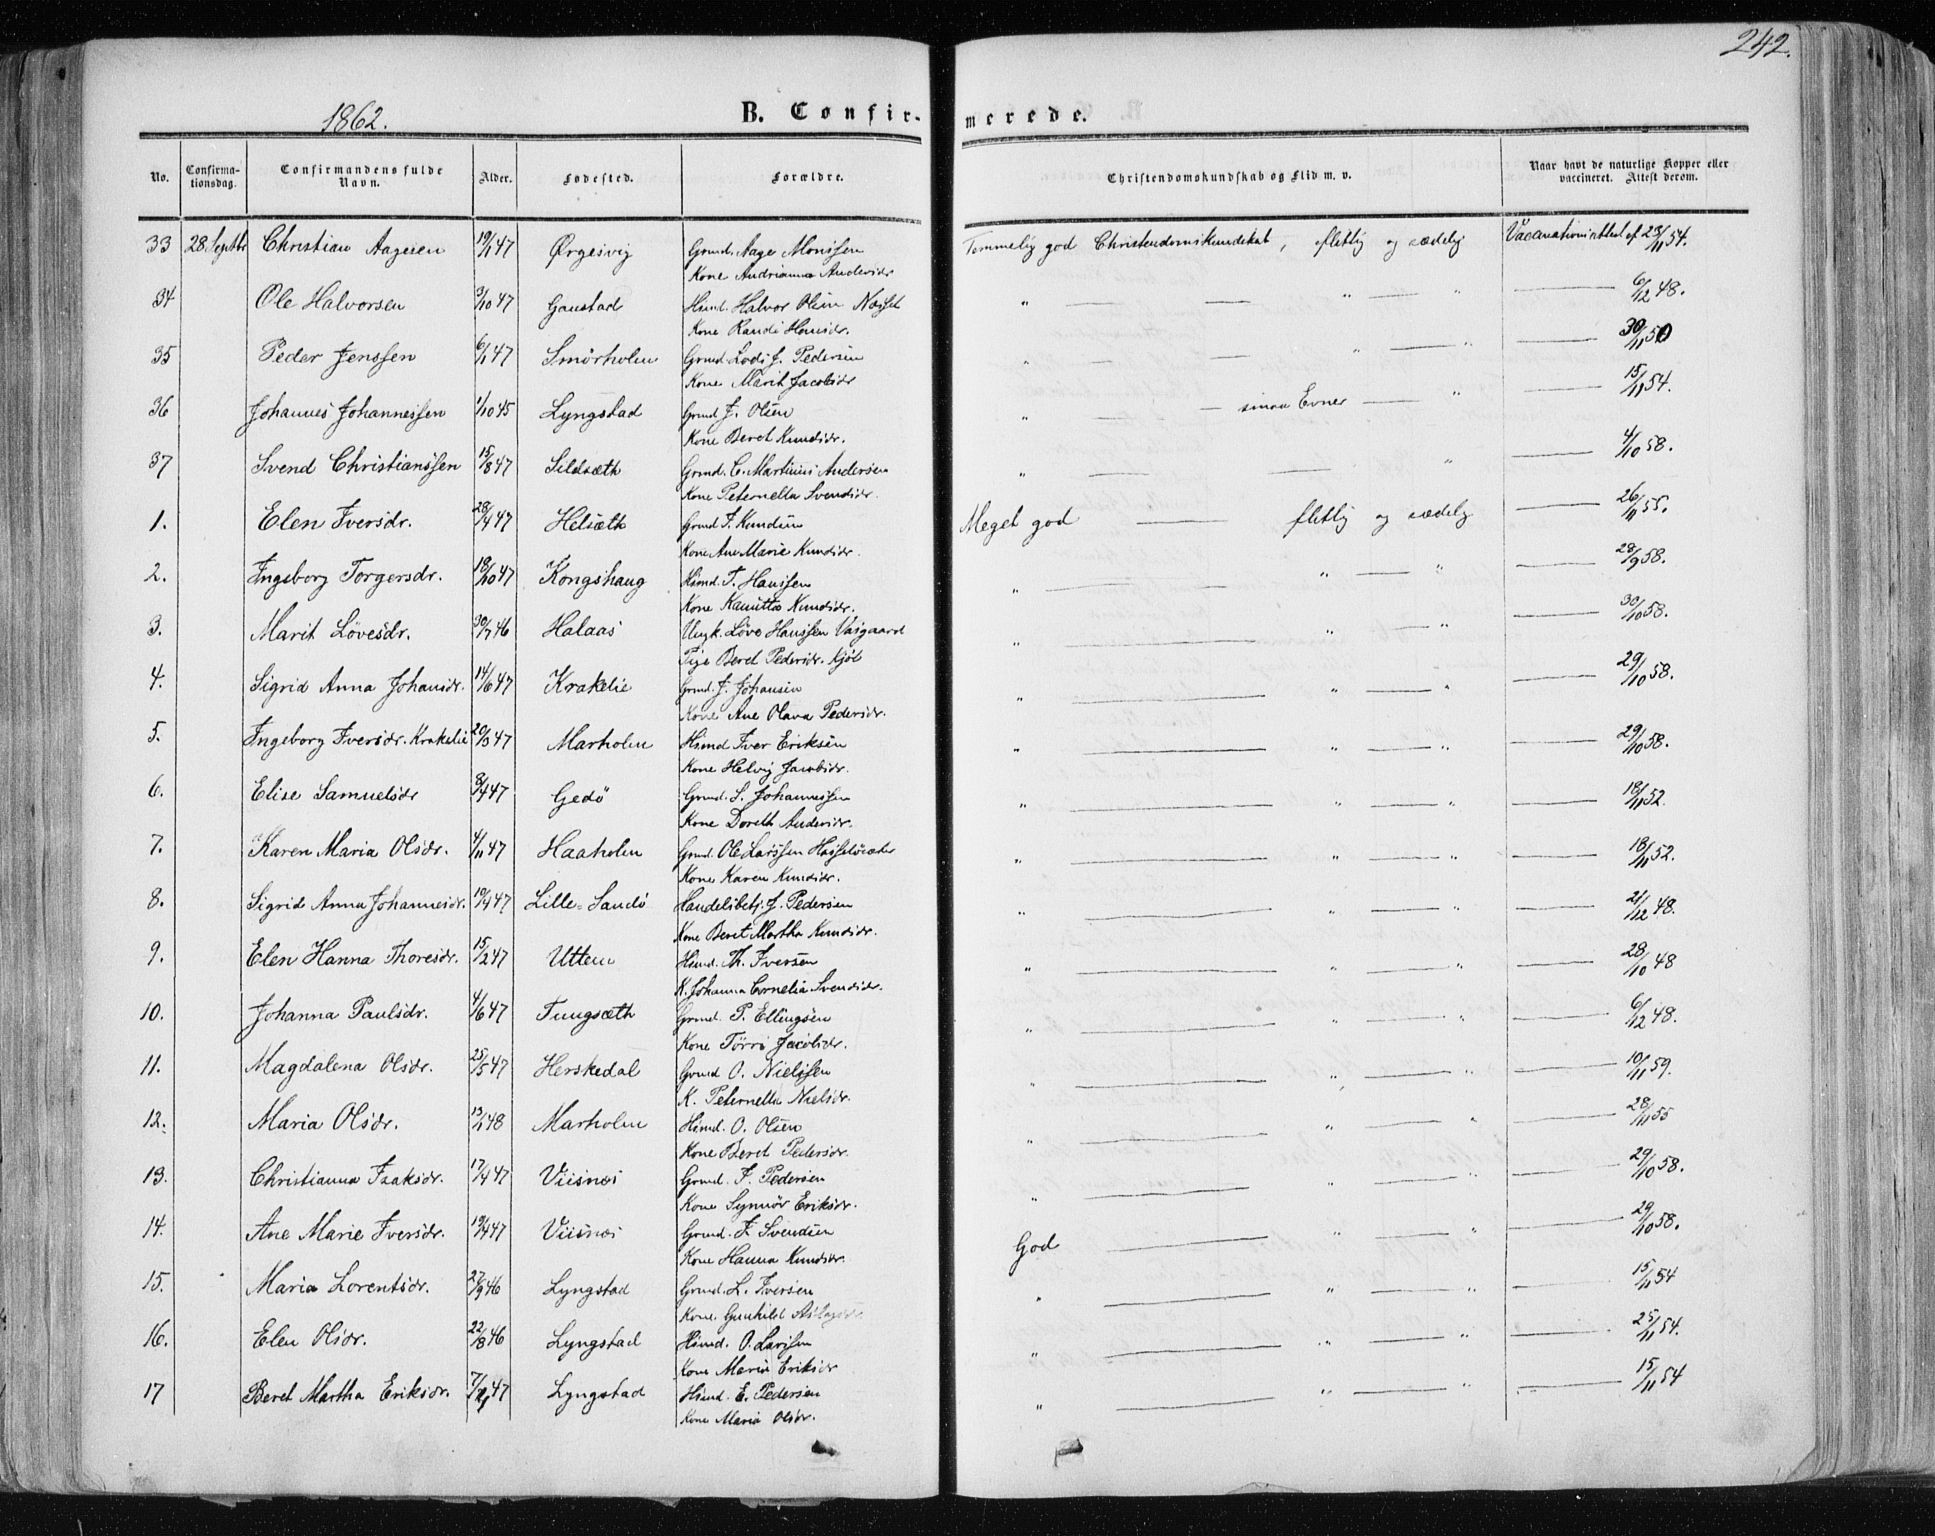 242.
1862.
B. Confirmerede.
No. Confirmationsdag. Confirmandens fulde Navn. Alder. Fødested. Forældre. Christendomskundskab og Flid m. v. Naar havt de naturlige Kopper eller vaccineret. Attest derom.
33 28 Septbr Christian Aagesen 19/1 47 Ørgesvig Grmd. Aage Monssen Temmelig god Christendomskundskab, flittig og sædelig Vaccinationsattest af 23/11 54.
Kone Andrianna Andersdr
34 Ole Halvorsen 3/10 47 Gaustad Hsmd. Halvor Olsen " — — " — " — 6/12 48.
Kone Randi Hansdr.
35 Peder Jenssen 6/1 47 Smörholm Grmd. J. Pedersen " — — " — " — 30/11 50
Kone Marit Jacobsdr
36 Johannes Johannessen 1/10 45 Lyngstad Grmd. J. Olsen " — — smaa Evner — " — 15/11 54.
Kone Beret Knudsdr.
37 Svend Christianssen 15/8 47 Sildsæth Grmd. C. Martinus Andersen " — — — " — 4/10 58.
Kone Peternella Svendsdr.
1. Elen Iversdr. 28/4 47 Helsæth Grmd I. Knudsen Meget god — flittig og sædelig — 26/11 55.
Kone Ane Marie Knudsdr.
2. Ingeborg Torgersdr. 18/10 47 Kongshaug Hsmd. T. Hanssen " — " — " — 28/9 58.
Kone Knudsdr.
3. Marit Lövesdr. 30/7 46 Halaas Ungk. Löve Hanssen Vaagaard " — " — " — 30/10 58.
Pige Beret Pedersdr. Kjöl
4. Sigrid Anna Johansdr. 14/6 47 Krakelie Grmd. J. Johansen " — " — " — 29/10 58.
Kone Ane Olava Pedersdr.
5. Ingeborg Iversdr. Krakelie 20/3 47 Marholm Hsmd Iver Eriksen " — " — " — 29/10 58.
Kone Helvig Jacobsdr.
6. Elise Samuelsdr 8/4 47 Gedö Grmd. S. Johannessen " — " — " — 18/11 52.
Kone Doreth Andersdr.
7. Karen Maria Olsdr. 4/11 47 Haaholm Grmd. Ole Larssen " — " — " — 18/11 52.
Kone Karen Knudsdr.
8. Sigrid Anna Johannesdr. 19/4 47 Lille-Sandö Handelsbetj. J. Pedersen " — " — " — 21/12 48.
Kone Beret Martha Knudsdr.
9. Elen Hanna Thoresdr. 15/2 47 Uttem Hsmd. Th. Iversen " — " — " — 28/10 48
K. Johanna Cornelia Svendsdr.
10. Johanna Paulsdr. 4/6 47 Tungsæth Grmd. P. Ellingsen " — " — " — 6/12 48.
Kone Törri Jacobsdr.
11. Magdalena Olsdr. 25/5 47 Herskedal Grmd O. Nielssen " — " — " — 10/11 59.
K. Peternella Nielsdr.
12. Maria Olsdr. 13/1 48 Marholm Hsmd. O. Olsen " — " — " — 28/11 55
Kone Beret Pedersdr.
13. Christianna Isaksdr. 17/4 47 Viisnæs Grmd. I. Pedersen " — " — " — 29/10 58.
Kone Synnör Eriksdr.
14. Ane Marie Iversdr. 19/4 47 Viisnæs Grmd. I. Svendsen God — " — " — 29/10 58.
Kone Hanna Knudsdr.
15. Maria Lorentsdr. 27/9 46 Lyngstad Grmd. L. Iversen " — " — " — 15/11 54
Kone. Gunhild Aslagsdr.
16. Elen Olsdr. 22/8 46 Lyngstad Hsmd. O. Larssen " — " — " — 25/11 54.
Kone Maria Eriksdr
17 Beret Martha Eriksdr. 47 Lyngstad Hsmd. E. Pedersen " — " — " — 15/11 54
Kone Maria Olsdr.